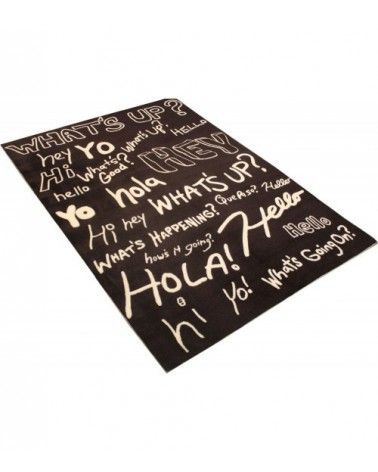 WHAT'S UP?
hey Yo WHAT'S UP? HELLO
Hi WHAT'S Good? HEY
hello
Yo hola
Hi hey WHAT'S UP? QUE PASA? Hello
WHAT'S HAPPENING? Hello
how's it going? Hello
HOLA! WHAT'S Going ON?
hi Yo!